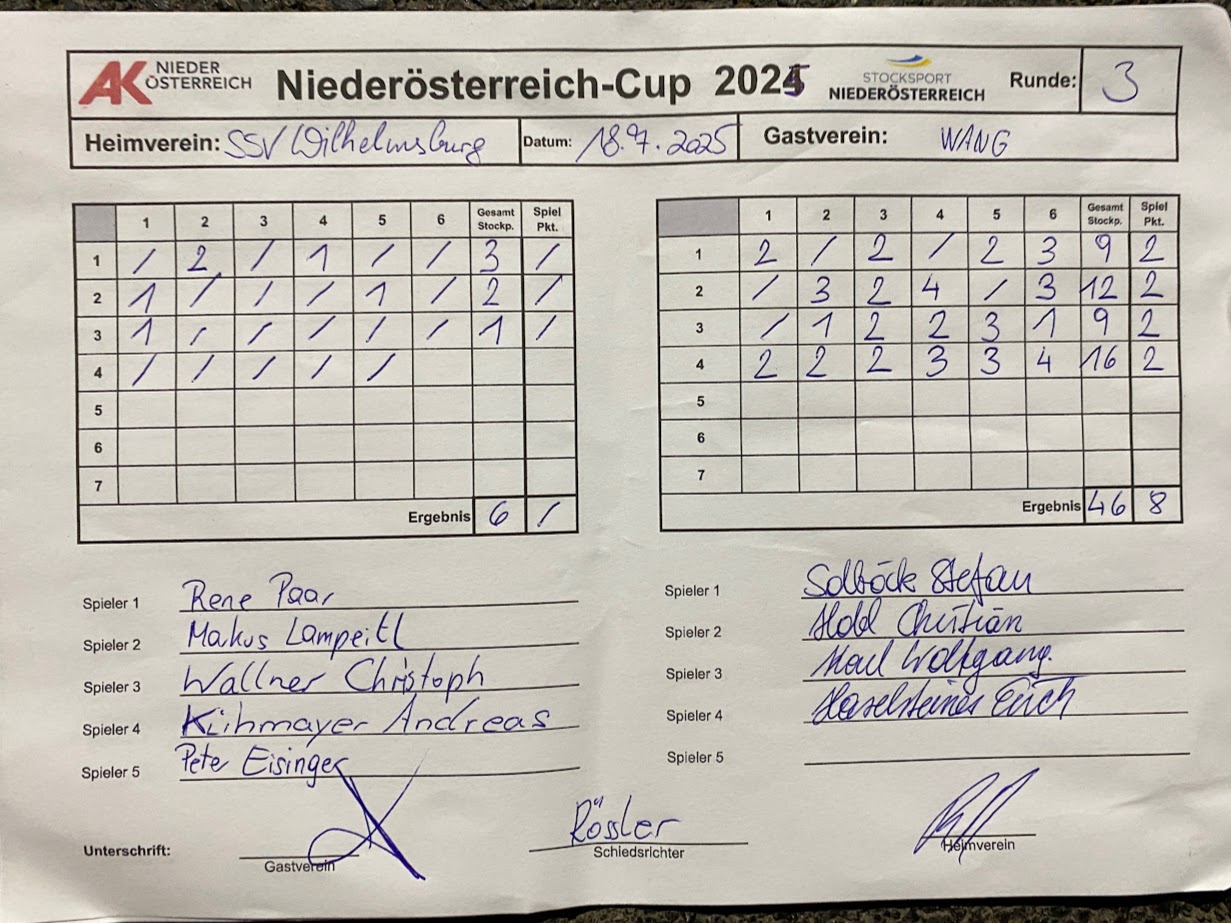 AK NIEDER ÖSTERREICH Niederösterreich-Cup 2025 STOCKSPORT NIEDERÖSTERREICH Runde: 3
Heimverein: SSV Wilhelmsburg Datum: 18.7.2025 Gastverein: WANG
1 2 3 4 5 6 Gesamt Stockp. Spiel Pkt.
1 / 2 / 1 / / 3 /
2 1 / / / 1 / 2 /
3 1 / / / / / 1 /
4 / / / / /
5
6
7
Ergebnis 6 /
1 2 3 4 5 6 Gesamt Stockp. Spiel Pkt.
1 2 / 2 / 2 3 9 2
2 / 3 2 4 / 3 12 2
3 / 1 2 2 3 1 9 2
4 2 2 2 3 3 4 16 2
5
6
7
Ergebnis 46 8
Spieler 1 Rene Paar
Spieler 2 Makus Lampeitl
Spieler 3 Wallner Christoph
Spieler 4 Kihmayer Andreas
Spieler 5 Pete Eisinger
Spieler 1 Solböck Stefan
Spieler 2 Christian
Spieler 3 Wolfgang.
Spieler 4 Haselsteiner Erich
Spieler 5
Unterschrift:
Gastverein
Rössler
Schiedsrichter
Heimverein